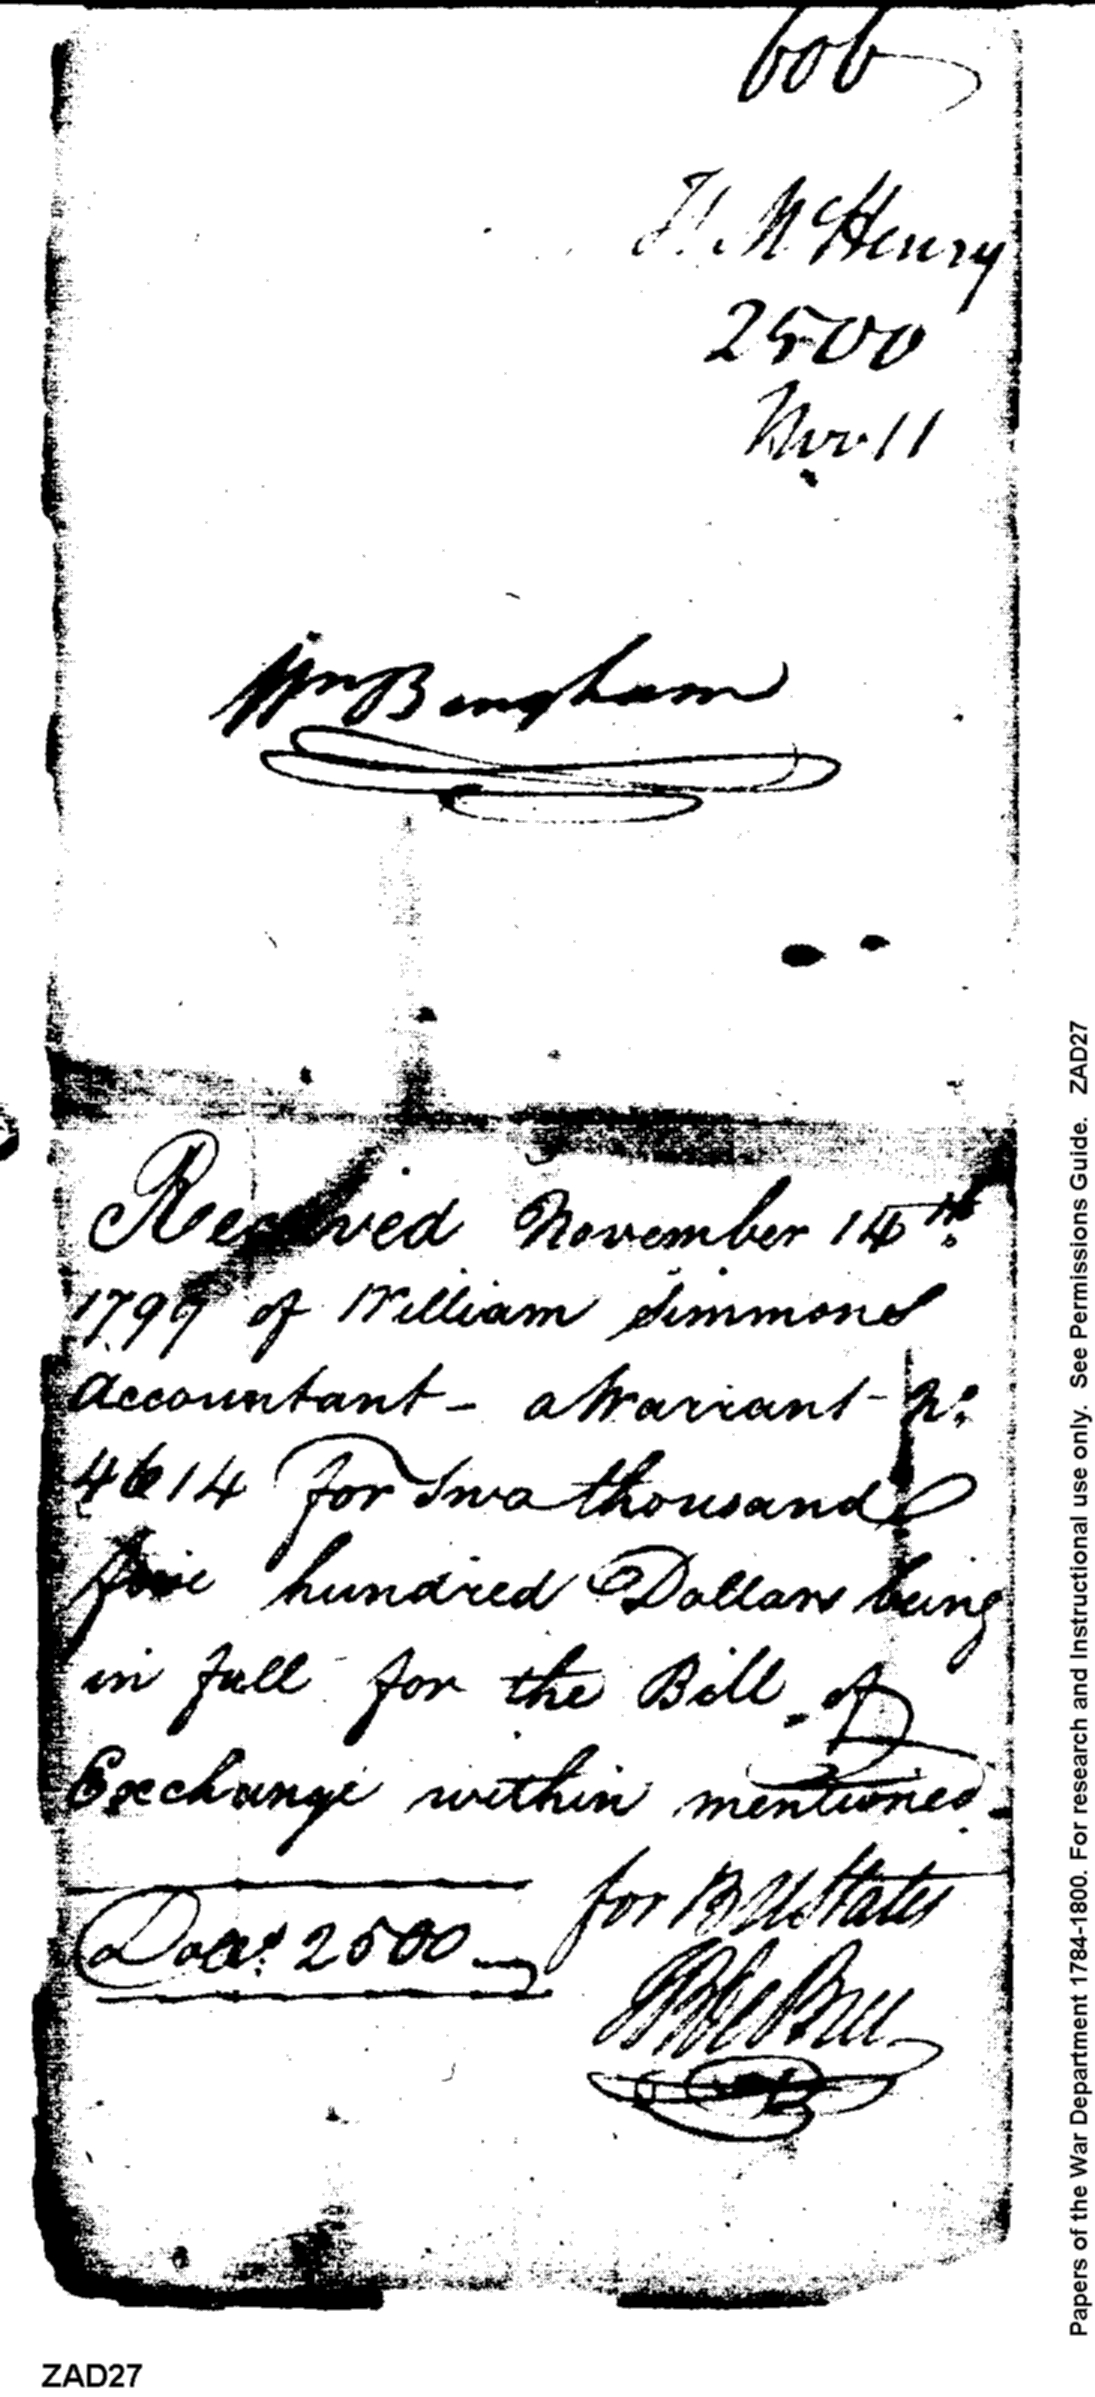 606
McHenry
2500
Nov. 11
Wm Bingham
Received November 14th
1799 of William Simmons
Accountant - a Warrant No.
4614 for Two thousand
five hundred Dollars being
in full for the Bill of
Exchange within mentioned.
for B U States
Dolls. 2500
Papers of the War Department 1784-1800. For research and Instructional use only. See Permissions Guide. ZAD27
ZAD27